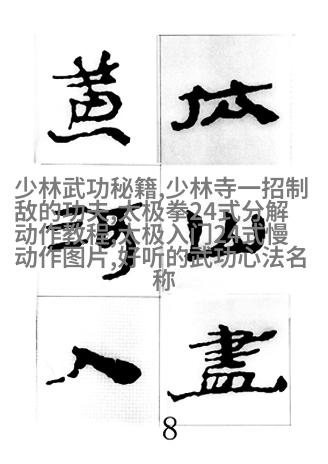 依山盡
黃河入
少林武功秘籍,少林寺一招制
敌的功夫,太极拳24式分解
动作教程,太极入门24式慢
动作图片,好听的武功心法名
称
8